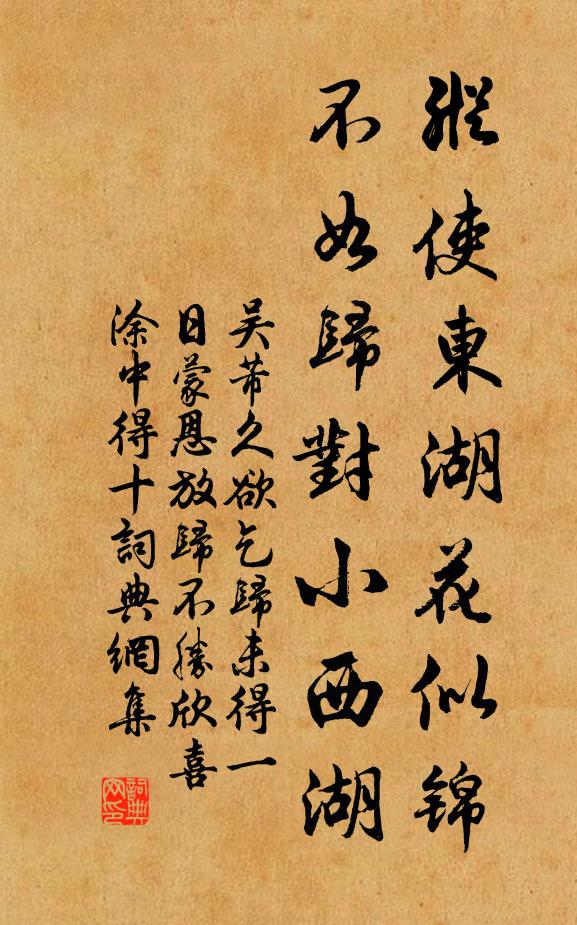 縱使東湖花似锦
不如歸對小西湖
吴芾久欲乞歸未得一
日蒙恩放歸不勝欣喜
涂中得十詞典網集
詞典网印